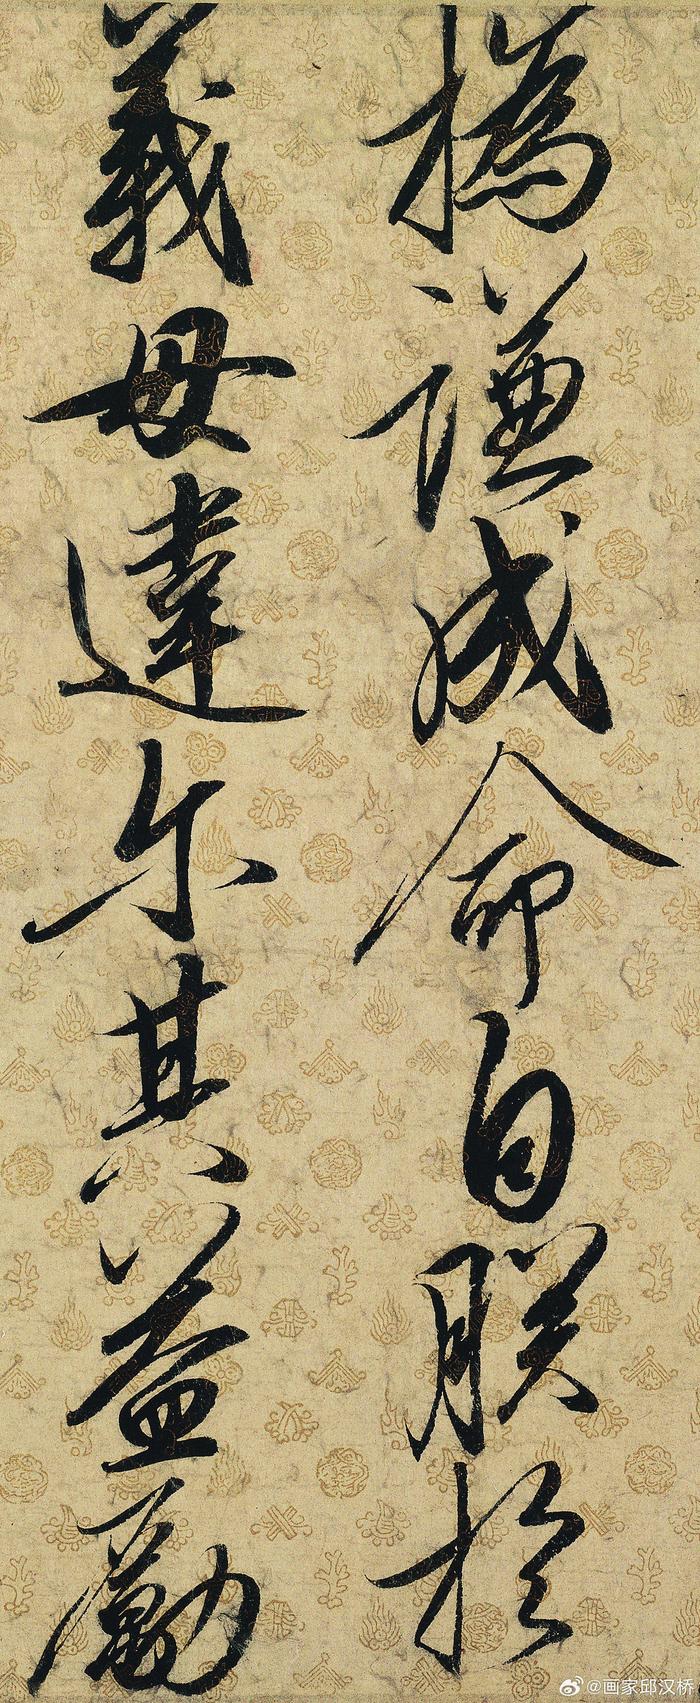 撝謙成命自朕於
義毋違尔其益勵
@画家邱汉桥